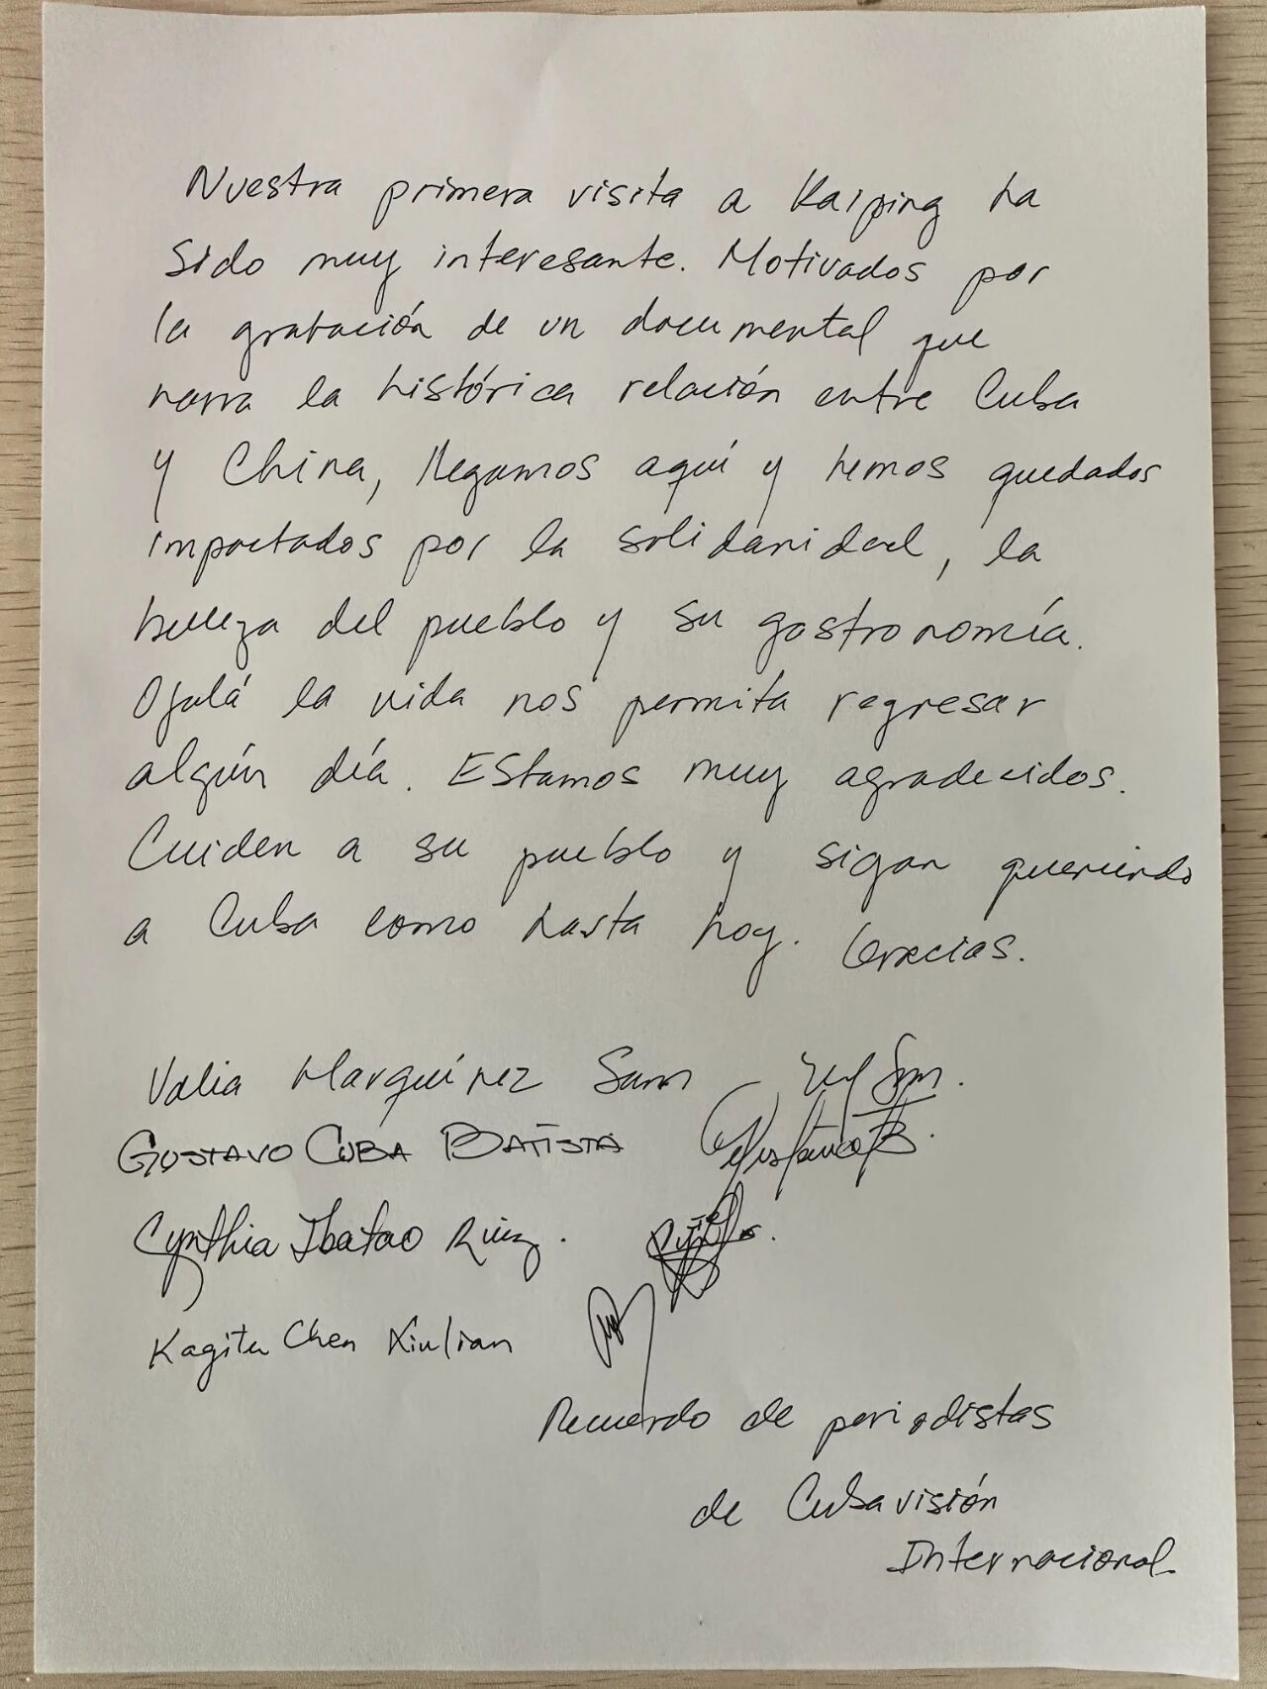 Nuestra primera visita a Kaiping ha
sido muy interesante. Motivados por
la grabación de un documental que
narra la histórica relación entre Cuba
y China, llegamos aquí y hemos quedados
impactados por la solidaridad, la
belleza del pueblo y su gastronomía.
Ojalá la vida nos permita regresar
algún día. Estamos muy agradecidos.
Cuiden a su pueblo y sigan queriendo
a Cuba como hasta hoy. Gracias.
Valia Marquínez Sam
GUSTAVO CUBA BATISTA
Cynthia Ibatao Ruiz.
Kagita Chen Xiulian
Recuerdo de periodistas
de Cubavisión
Internacional